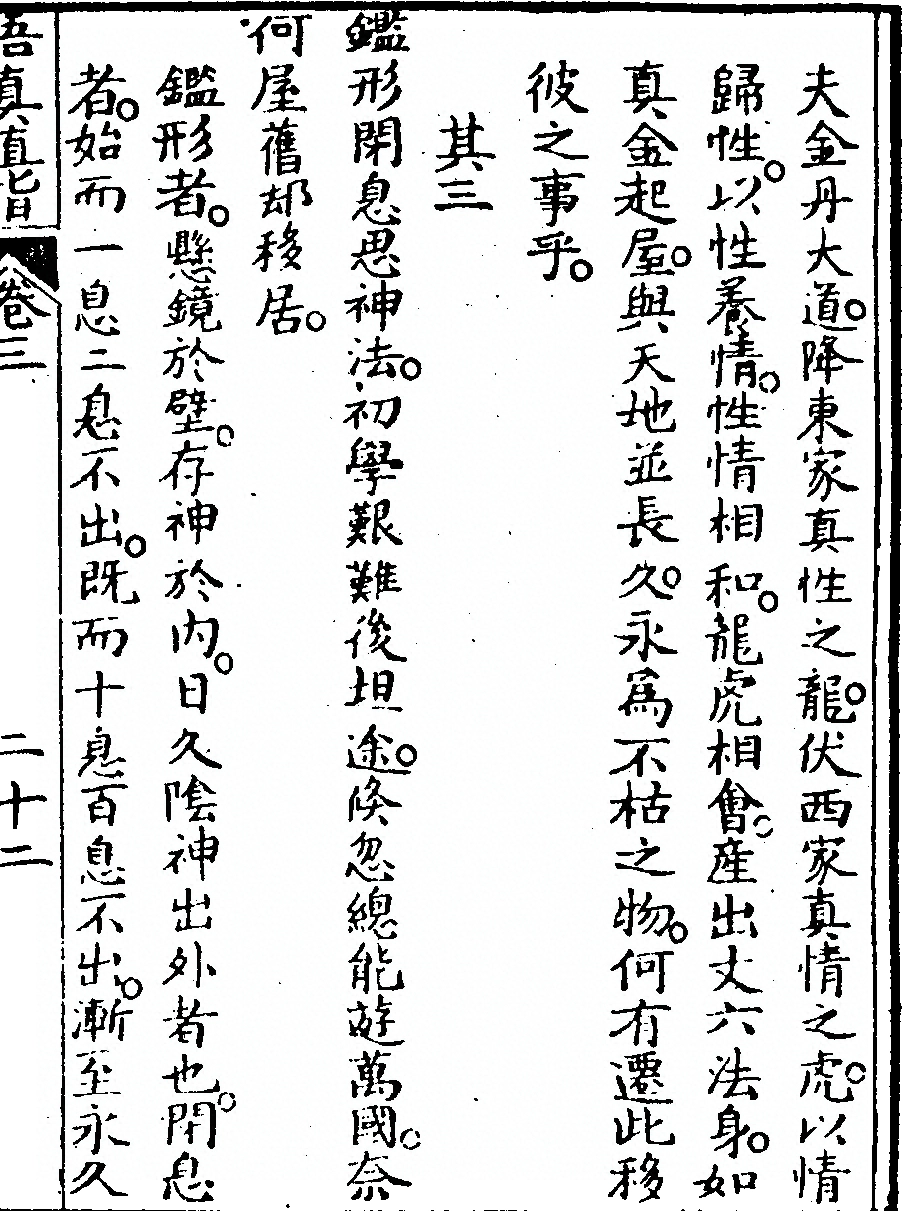 夫金丹大道。降東家真性之龍。伏西家真情之虎。以情
歸性。以性養情。性情相和。龍虎相會。產出丈六法身。如
真金起屋。與天地並長久。永為不枯之物。何有遷此移
彼之事乎。
其三
鑑形閉息思神法。初學艱難後坦途。倐忽總能遊萬國。奈
何屋舊却移居。
鑑形者。懸鏡於壁。存神於內。日久陰神出外者也。閉息
者。始而一息二息不出。既而十息百息不出。漸至永久
悟真直指 卷三 二十二